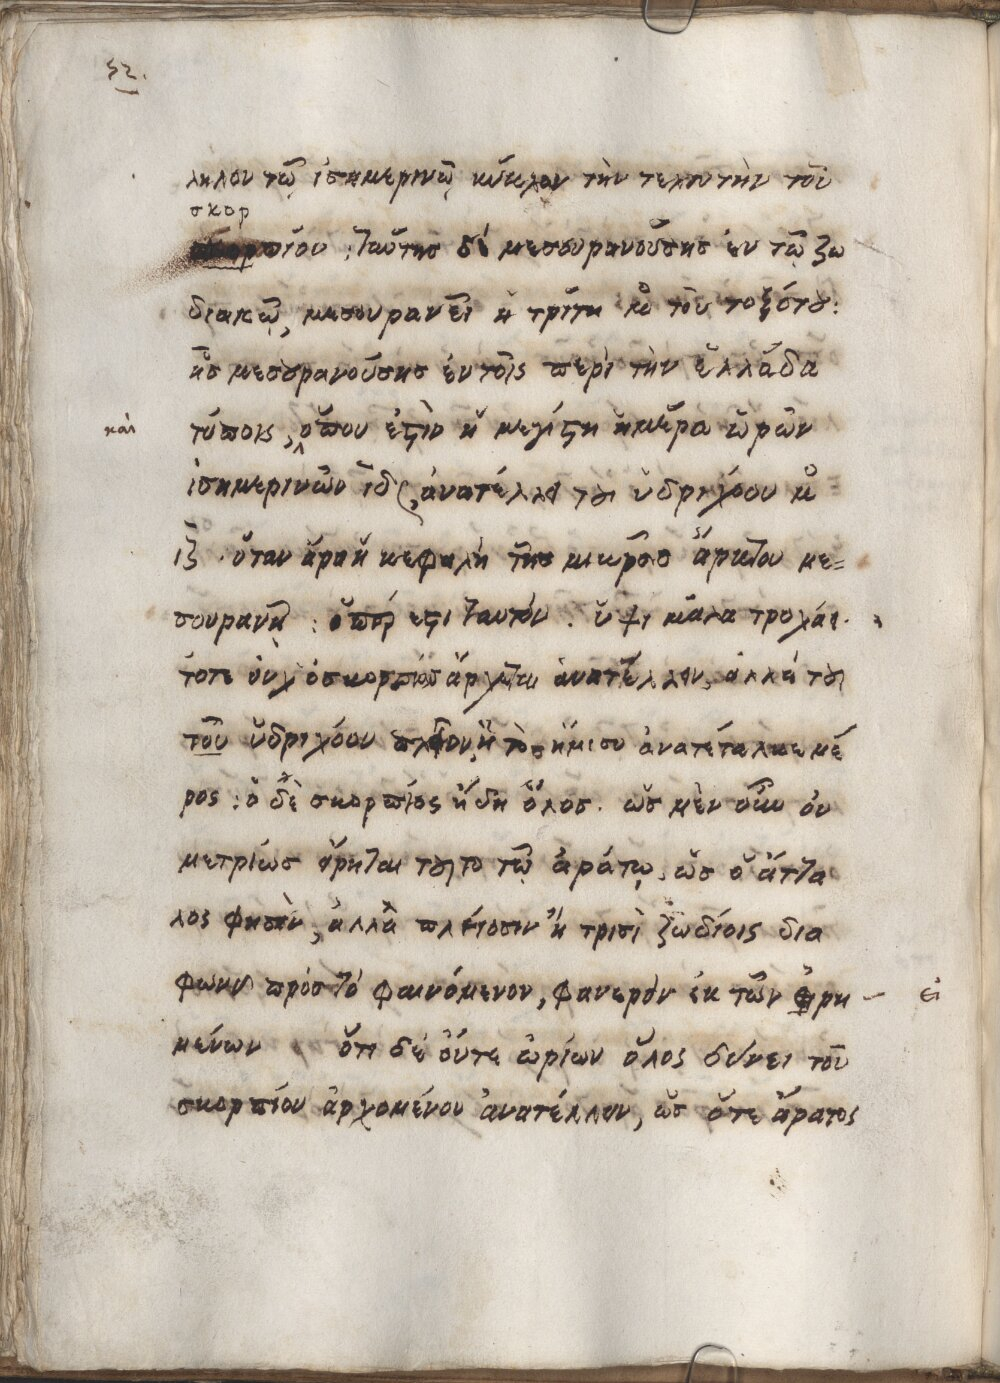 52.
ληλον τῶ ἰσημερινῶ κύκλον τὴν τελευτὴν τοῦ
σκορ
σκορπίου : ταύτησ δὲ μεσουρανούσησ ἐν τῶ ζω
διακῶ, μεσουρανεῖ ἡ τρίτη μο τοῦ τοξότου :
ἧσ μεσουρανούσησ ἐν τοῖς περὶ τὴν ἑλλάδα
καὶ
τόποις, ὅπου ἐστὶν ἡ μεγίστη ἡμέρα ὡρῶν
ἰσημερινῶν ιδ, ἀνατέλλει τοῦ ὑδριχόου μο
ιζ . ὅταν ἄρα ἡ κεφαλὴ τῆσ μικρᾶσ ἄρκτου με=
σουρανῆ : ὅπερ ἐστι ταυτὸν . ὕψι μάλα τροχάει.
τότε οὐχ ὁ σκορπίοσ ἄρχεται ἀνατέλλειν, ἀλλὰ τοῦ
τοῦ ὑδριχόου πλεῖον, ἢ τὸ ἥμισυ ἀνατέταλκε μέ
ρος : ὁ δὲ σκορπίος ἤδη ὅλοσ . ὡσ μὲν οὖν οὐ
μετρίωσ εἴρηται τοῦτο τῶ ἀράτω, ὡσ ὁ ἄττα
λος φησὶν, ἀλλὰ πλείοσιν ἢ τρισὶ ζωδίοις δια
φωνεῖ πρὸσ τὸ φαινόμενον, φανερὸν ἐκ τῶν εἰρη
εἰ
μένων ὅτι δὲ οὔτε ὠρίων ὅλος δύνει τοῦ
σκορπίου ἀρχομένου ἀνατέλλειν, ὡσ ὅτε ἄρατος